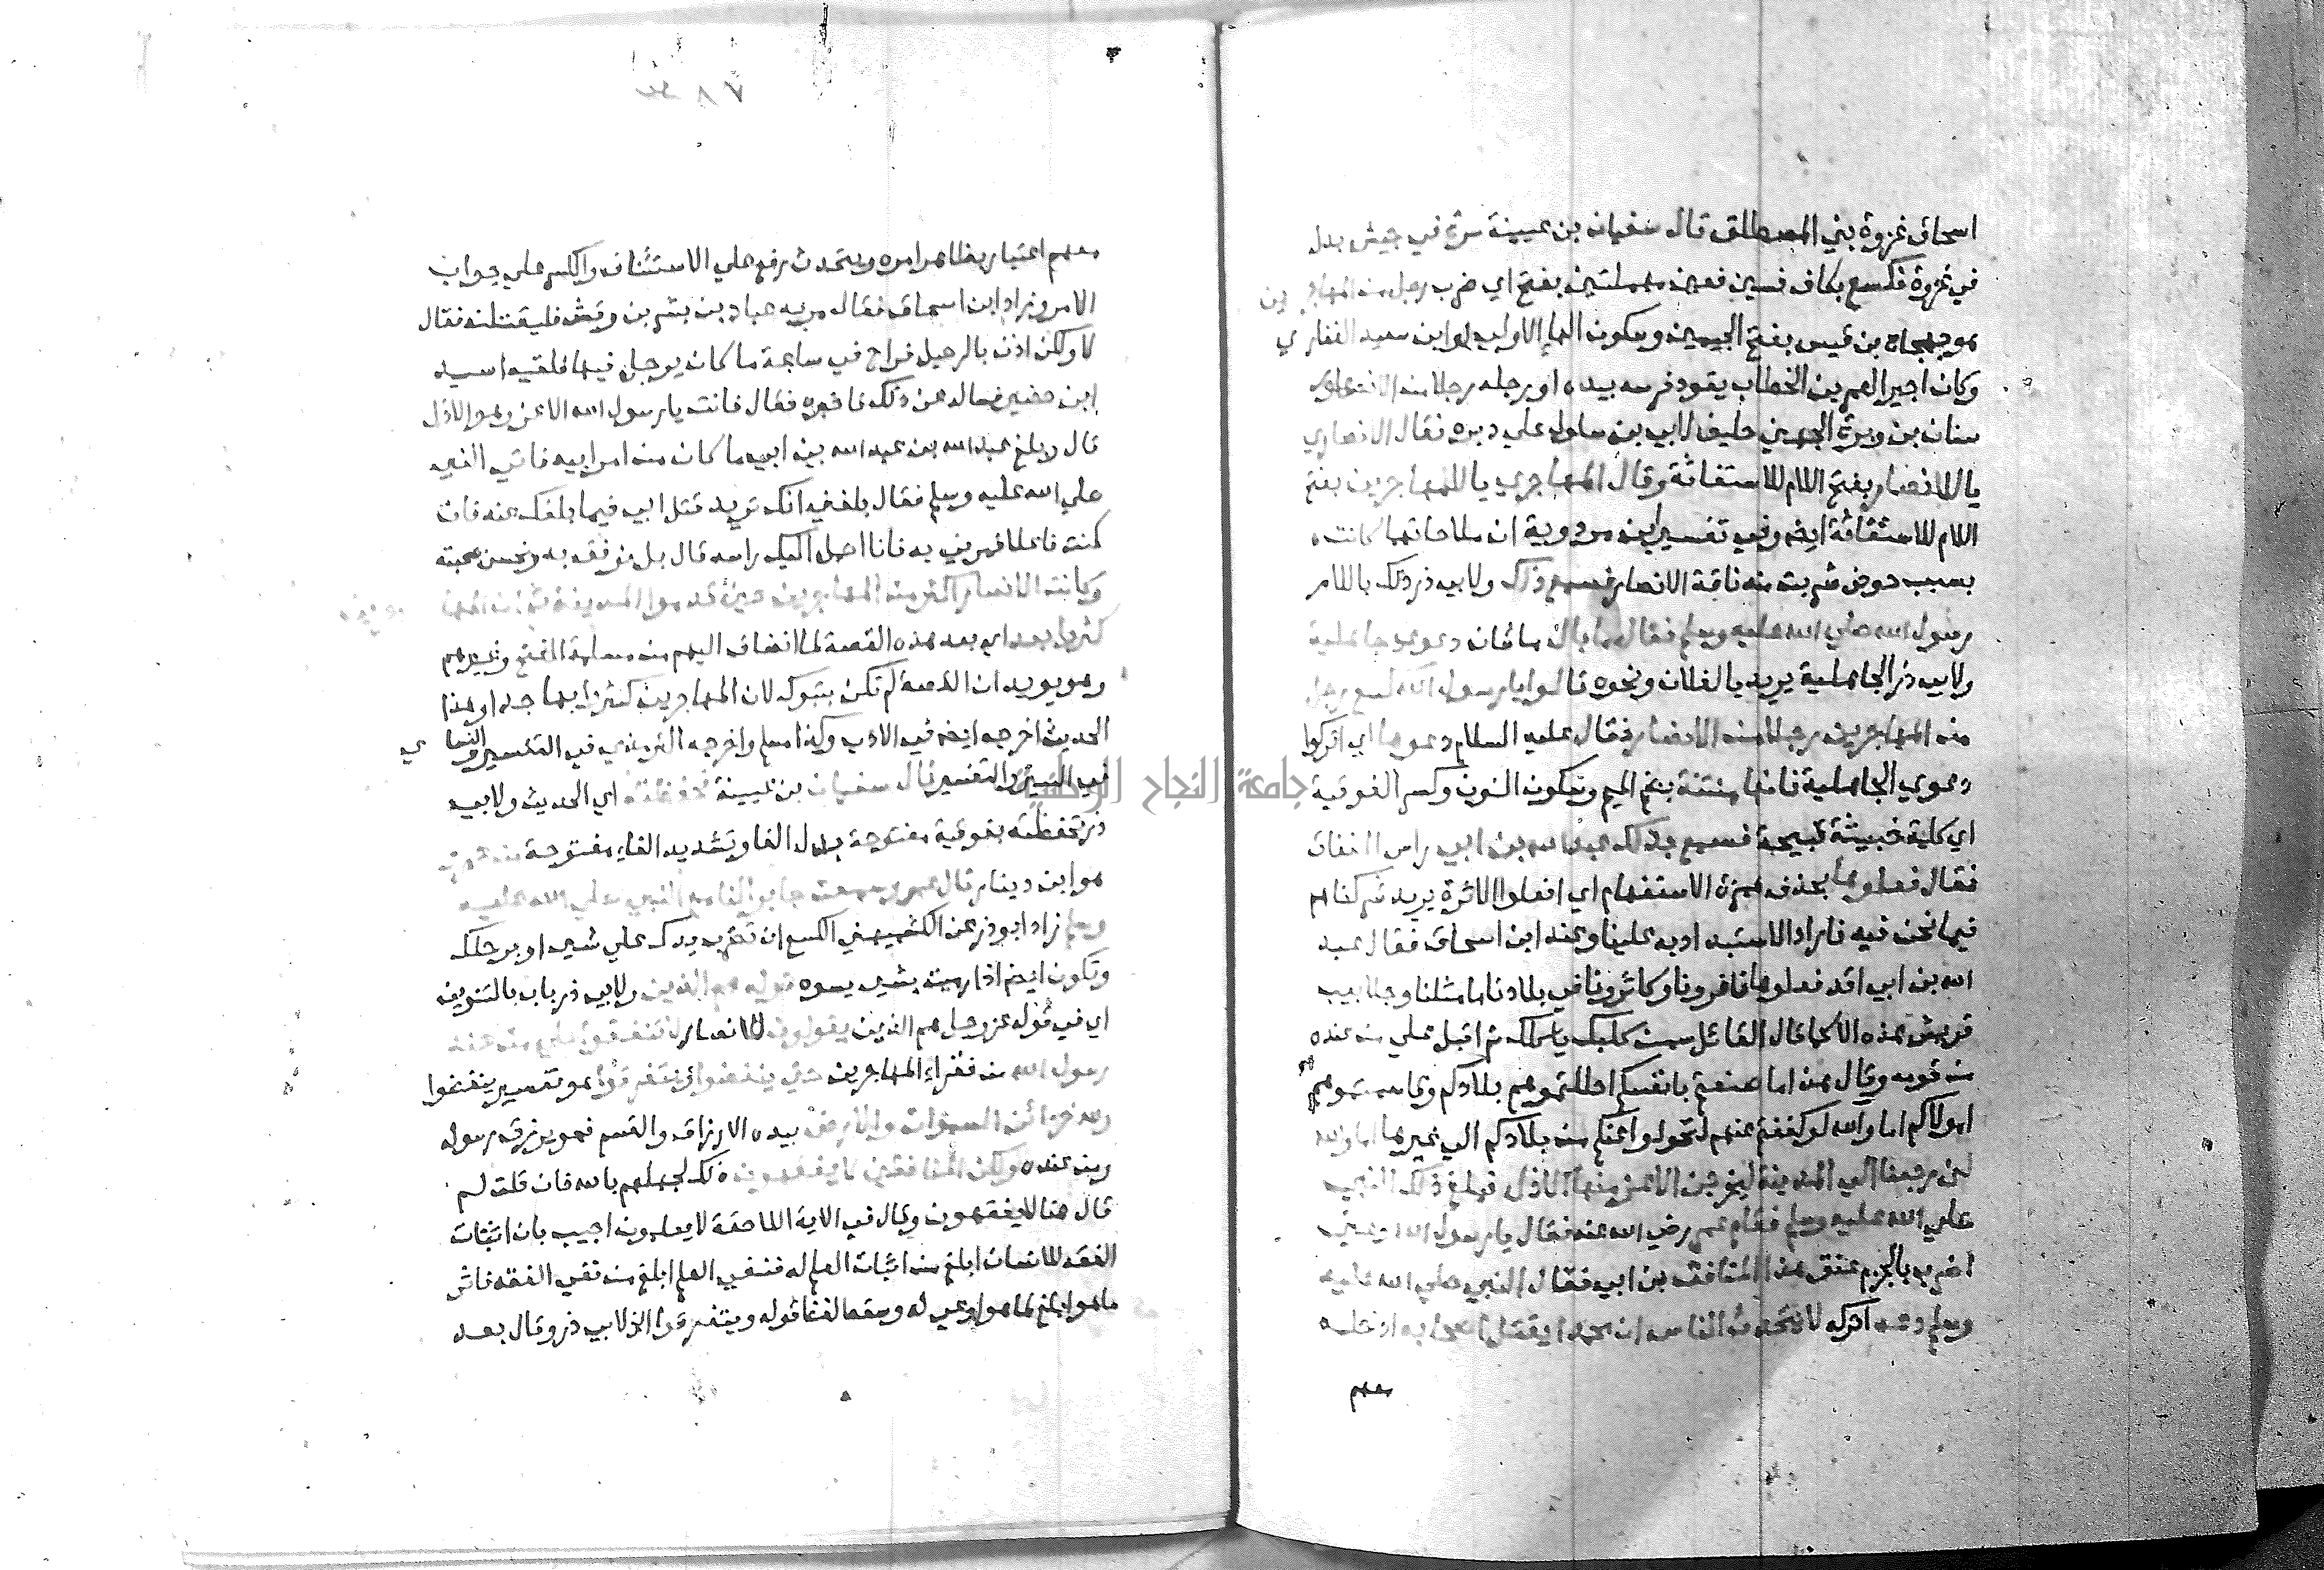 اسحاق غزوة بني المصطلق قال سفيان بن عيينة مرة في جيش بدل
في غزوة فكسع بكاف فسين فعين مهملتين بفتح اي ضرب رجل من المهاجرين
هو جهجاه بن قيس بفتح الجيمين وسكون الهاء الاولي او ابن سعيد الغفاري
وكان اجير العمر بن الخطاب يقود فرسه بيده او برجله رجلا من الانصار
سنان بن وبرة الجهني حليف لابي بن سلول علي دبره فقال الانصاري
يا للانصار بفتح اللام للاستغاثة وقال المهاجري يا للمهاجرين بفتح
اللام للاستغاثة ايضا وفي تفسير ابن مردوية ان ملاحاتهما كانت
بسبب حوض شربت منه ناقة الانصار فسمع ذاك ولابي ذر ذلك باللام
رسول الله صلي الله عليه وسلم فقال ما بال ما شان دعوي جاهلية
ولابي ذر الجاهلية يريد يا لفلان ونحوه قالوا يا رسول الله كسع رجل
من المهاجرين رجلا من الانصار فقال عليه السلام دعوها اي اتركوا
دعوي الجاهلية فانها منتنة بضم الميم وسكون النون وكسر الفوقية
اي كلمة خبيثة قبيحة فسمع بذلك عبد الله بن ابي راس النفاق
فقال فعلوها بحذف همزة الاستفهام اي افعلوا الاثرة يريد شركناهم
فيما نحن فيه فارادوا الاستبداد به علينا وعند ابن اسحاق فقال عبد
الله بن ابي اقد فعلوها نافرونا وكاثرونا في بلادنا ما مثلنا وجلابيب
قريش هذه الا كما قال القائل سمن كلبك ياكلك ثم اقبل علي من عنده
من قومه وقال هذا ما صنعتم بانفسكم احللتموهم بلادكم وقاسمتموهم
اموالكم اما والله لو كففتم عنهم لتحولوا عنكم من بلادكم الي غيرها اما والله
لئن رجعنا الي المدينة ليخرجن الاعز منها الاذل فبلغ ذلك النبي
صلي الله عليه وسلم فقام عمر رضي الله عنه فقال يا رسول الله دعني
اضرب بالجزم عنق هذا المنافق بن ابي فقال النبي صلي الله عليه
وسلم دعه اتركه لا يتحدث الناس ان محمدا يقتل اصحابه ادخله
معهم
٧٨
معهم اعتبار بظاهر امره ويتحدث رفع علي الاستئناف والكسر علي جواب
الامر وزاد ابن اسحاق فقال مر به عباد بن بشر بن وقش فليقتلنه فقال
لا ولكن اذن بالرحيل فراح في ساعة ما كان يرحل فيها فلقيه اسيد
ابن حضير فساله عن ذلك فاخبره فقال فانت يا رسول الله الاعز وهو الاذل
قال وبلغ عبد الله بن عبد الله بن ابي ما كان من امر ابيه فاتي النبي
صلي الله عليه وسلم فقال بلغني انك تريد قتل ابي فيما بلغك عنه فان
كنت فاعلا فمرني به فانا احمل اليك راسه قال بل نرفق به ونحسن صحبته
وكانت الانصار اكثر من المهاجرين حين قدموا المدينة ثم ان المهاجرين
كثروا بعد اي بعد هذه القصة لما انضاف اليهم من مسلمة الفتح وغيرهم
وهو يويد ان القصة لم تكن بتبوك لان المهاجرين كثروا بها جدا وهذا
الحديث اخرجه ايضا في الادب وكذا مسلم واخرجه الترمذي في التفسير والنساي
في السير والتفسير قال سفيان بن عيينة فحفظته اي الحديث ولابي
ذر تحفظته بفوقية مفتوحة بدل الفا وتشديد الفاء مفتوحة من عمرو
هو ابن دينار قال عمرو سمعت جابرا كنا مع النبي صلي الله عليه
وسلم زاد ابو ذر عن الكشميهني الكسع ان تضرب بيدك علي شيء او برجلك
وتكون ايضا اذا رميته بشيء يسوه قوله هم الذين ولابي ذر باب بالتنوين
اي في قوله عز وجل هم الذين يقولون للانصار لا تنفقوا علي من عند
رسول الله من فقراء المهاجرين حتي ينفضوا يتفرقوا هو تفسير ينفضوا
ولله خزائن السموات والارض بيده الارزاق والقسم فهو يرزق رسوله
ومن عنده ولكن المنافقين لا يفقهون ذلك لجهلهم بالله فان قلت لم
قال هنا لا يفقهون وقال في الاية اللاحقة لا يعلمون اجيب بان اثبات
الفقه للانسان ابلغ من اثبات العلم له فنفي العلم ابلغ من نفي الفقه فاثر
ما هو ابلغ لما هو ادعي له وسقط لفظ قوله ويتفرقوا لابي ذر وقال بعد
جامعة النجاح الوطنية